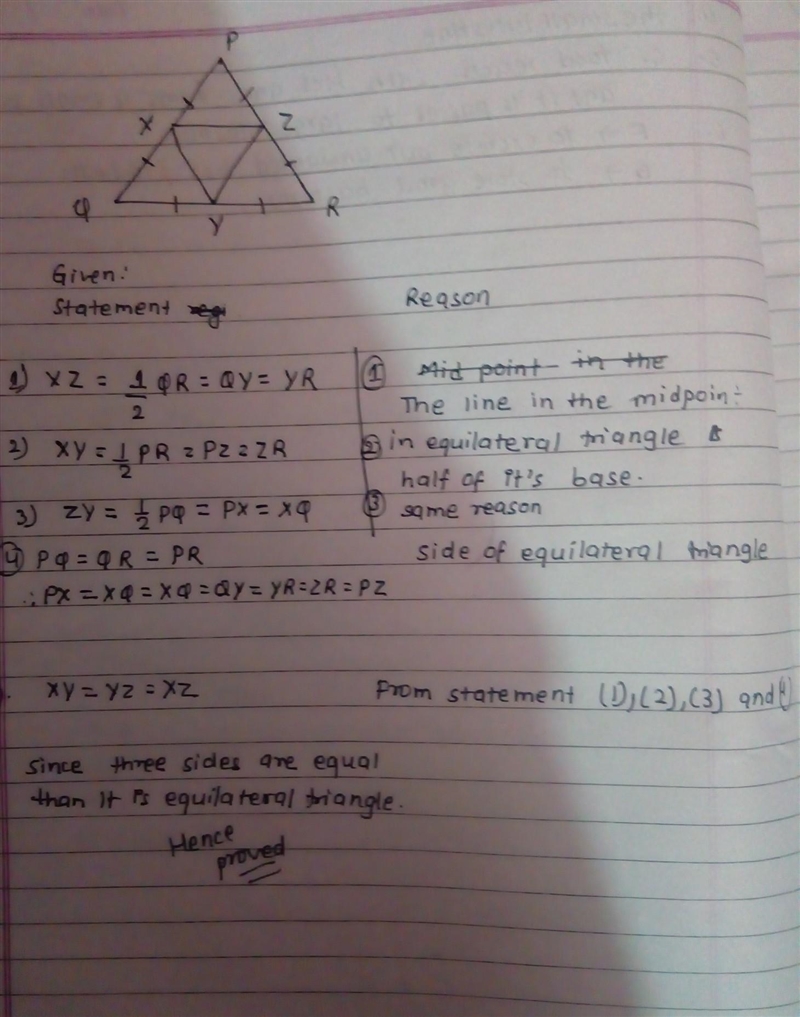 P
X Z
Q Y R
Given:
Statement Reason
1) XZ = 1/2 QR = QY = YR ① Mid point in the
The line in the midpoint
2) XY = 1/2 PR = PZ = ZR ② in equilateral triangle is
half of it's base.
3) ZY = 1/2 PQ = PX = XQ ③ same reason
④ PQ = QR = PR side of equilateral triangle
∴ PX = XQ = XQ = QY = YR = ZR = PZ
. XY = YZ = XZ From statement (1), (2), (3) and (4)
since three sides are equal
than it is equilateral triangle.
Hence
proved